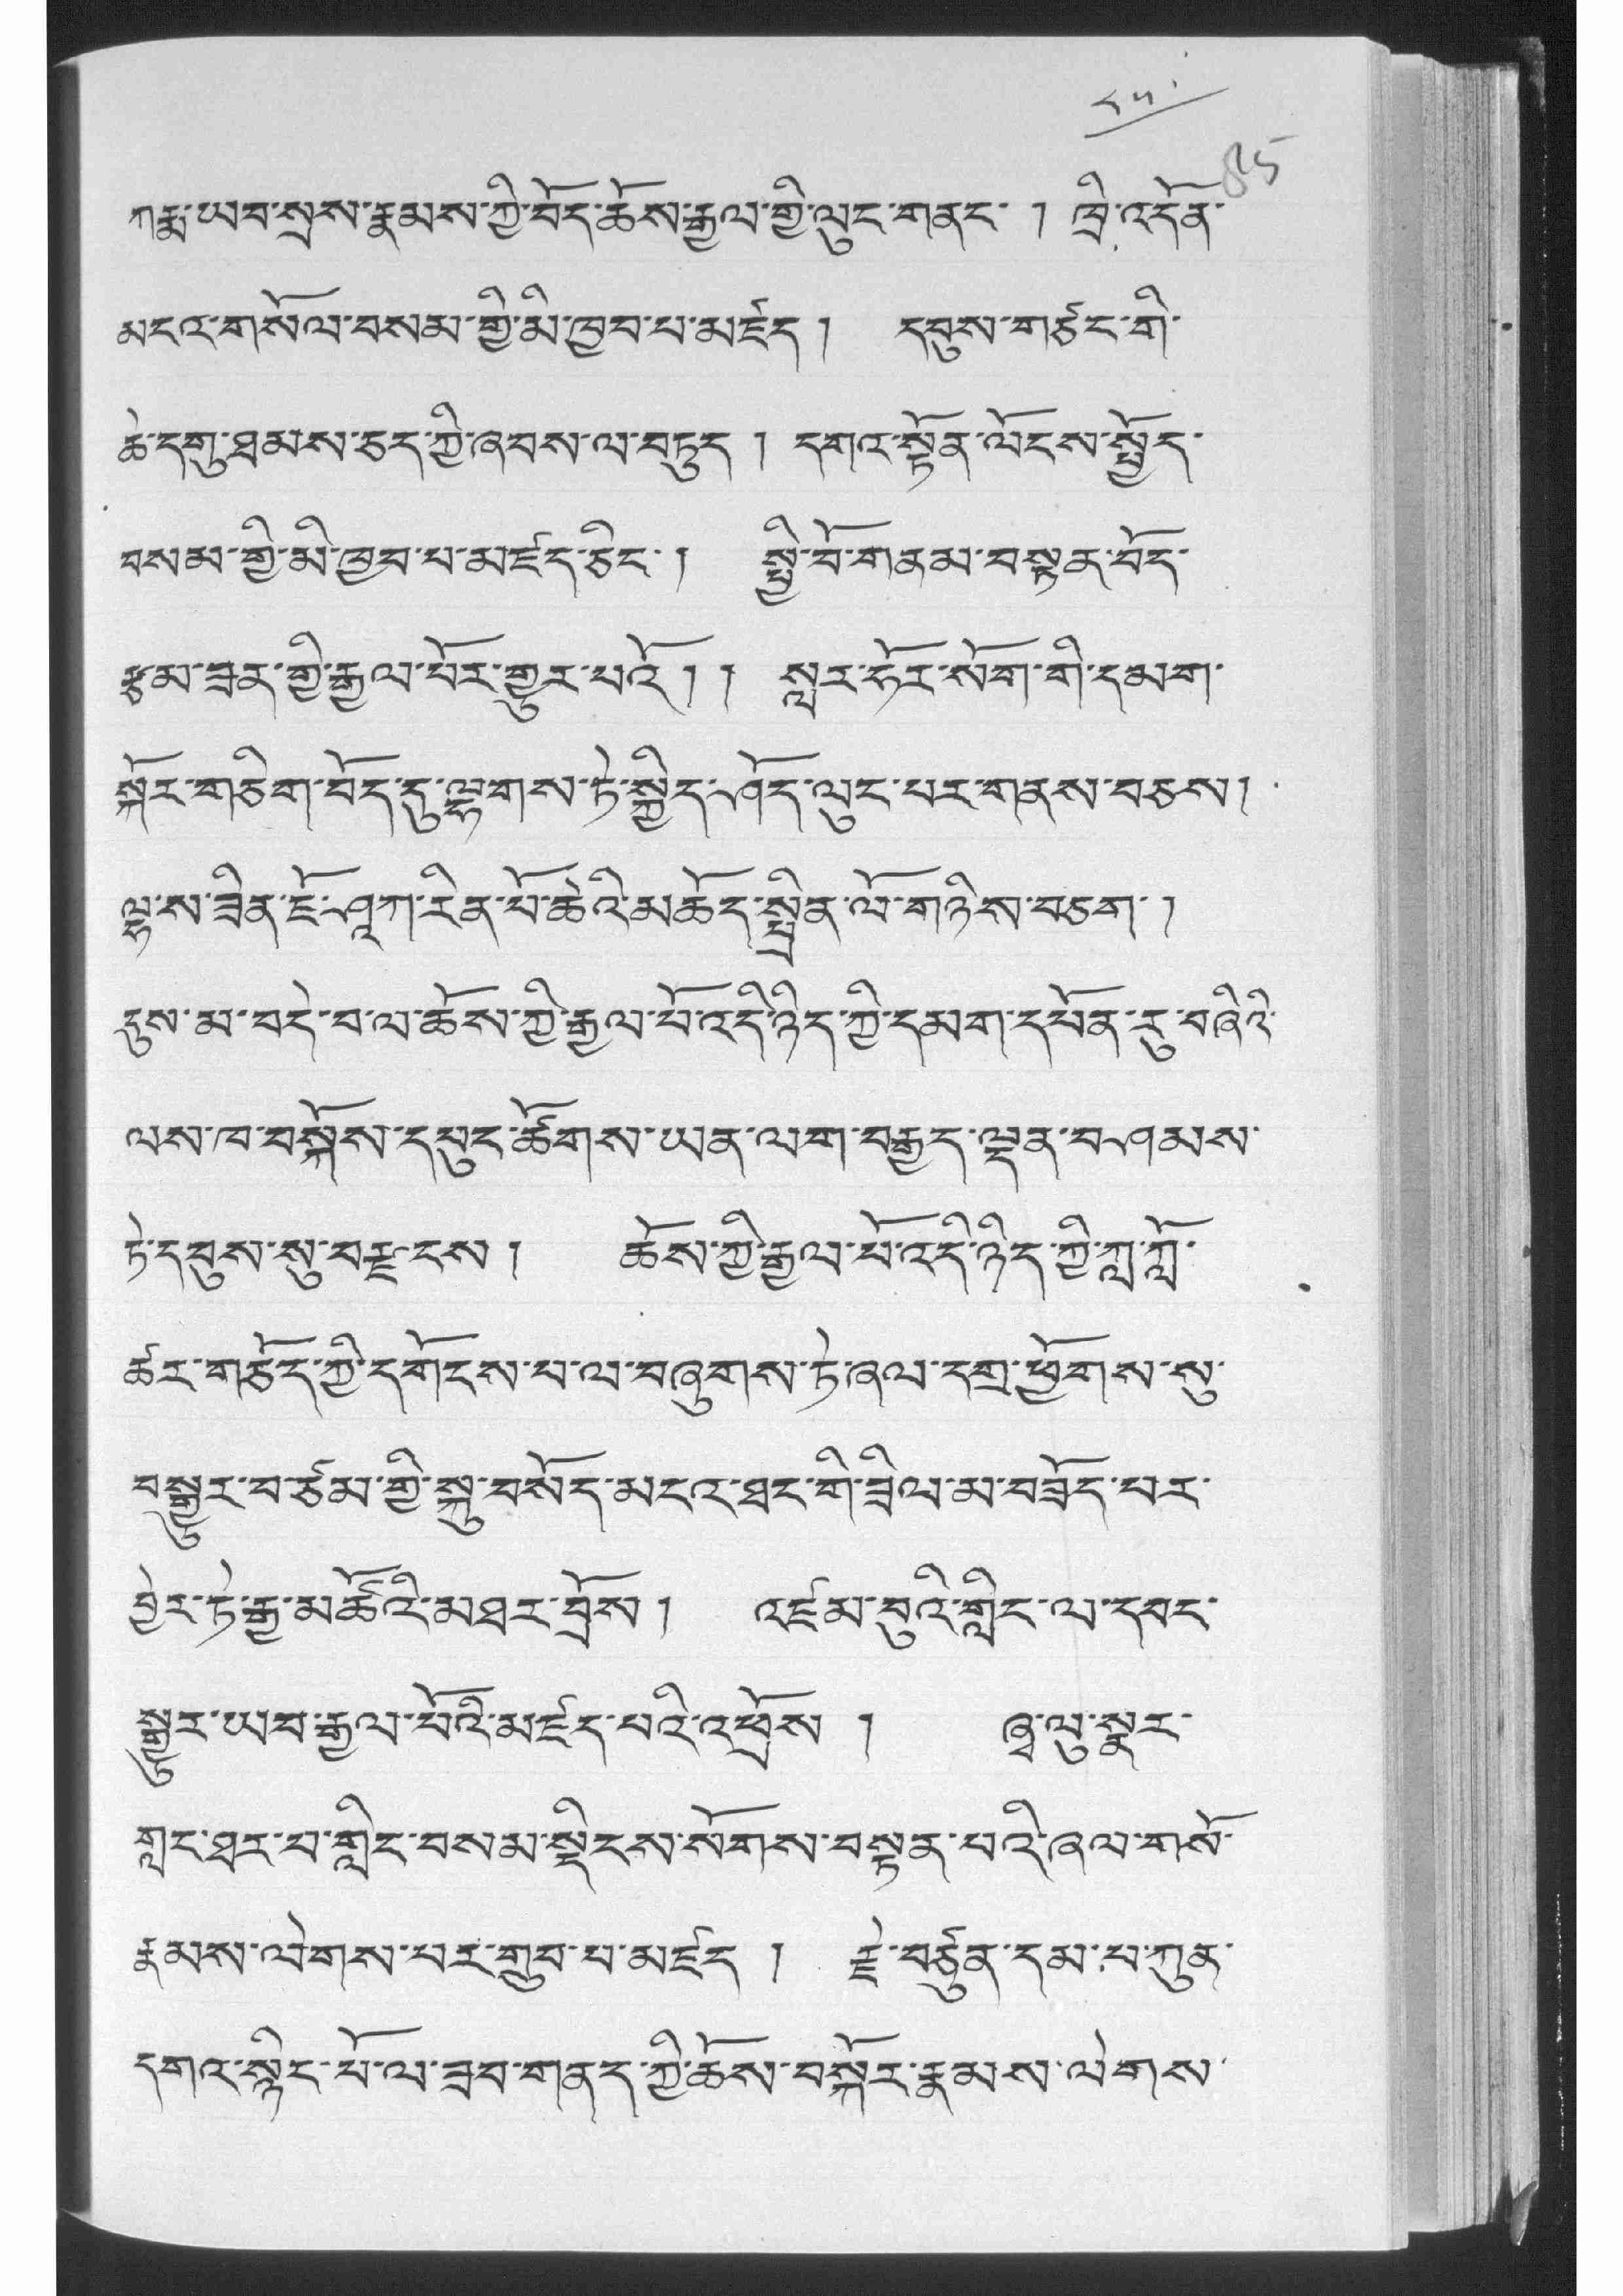 ༨༥
85
ཀརྨ་ཡབ་སྲས་རྣམས་ཀྱི་བོད་ཆོས་རྒྱལ་གྱི་ལུང་གནང་ ། ཁྲི་འདོན་
མངའ་གསོལ་བསམ་གྱི་མི་ཁྱབ་པ་མཛད། དབུས་གཙང་གི་
ཆེ་དགུ་ཐམས་ཅད་ཀྱི་ཞབས་ལ་བཏུད། དགའ་སྟོན་ལོངས་སྤྱོད་
བསམ་གྱི་མི་ཁྱབ་པ་མཛད་ཅིང་། སྤྱི་བོ་གནམ་བསྟན་བོད་
ཙམ་ཟན་གྱི་རྒྱལ་པོར་གྱུར་པའོ།། སླར་ཧོར་སོག་གི་དམག་
སྐོར་གཅིག་བོད་དུ་ལྷགས་ཏེ་སྐྱིད་ཤོད་ལུང་པར་གནས་བཅས།
ལྷ་ས་ཟིན་ཇོ་ཤཱཀ་རིན་པོ་ཆེའི་མཆོད་སྤྲིན་ལོ་གཉིས་བཅག་།
དུས་མ་བདེ་བ་ལ་ཆོས་ཀྱི་རྒྱལ་པོ་འདི་ཉིད་ཀྱི་དམག་དཔོན་རུ་བཞིའི་
ལས་ཁ་བསྐོས་དཔུང་ཚོགས་ཡན་ལག་བརྒྱད་ལྡན་བཤམས་
ཏེ་དབུས་སུ་བརྫངས། ཆོས་ཀྱི་རྒྱལ་པོ་འདི་ཉིད་ཀྱི་ཀླ་ཀློ་
ཚར་གཅོད་ཀྱི་དགོངས་པ་ལ་བཞུགས་ཏེ་ཞལ་དགྲ་ཕྱོགས་སུ་
བསྒྱུར་བ་ཙམ་གྱི་སྐུ་བསོད་མངའ་ཐང་གི་ཟིལ་མ་བཟོད་པར་
བྱེར་ཏེ་རྒྱ་མཚོའི་མཐར་བྲོས། འཛམ་བུའི་གླིང་ལ་དབང་
སྒྱུར་ཡབ་རྒྱལ་པོའི་མཛད་པའི་འཕྲོས ། ཞྭ་ལུ་སྣར་
གླང་ཐར་པ་གླིང་བསམ་སྡིངས་སོགས་བསྟན་པའི་ཞལ་གསོ་
རྣམས་ལེགས་པར་གྲུབ་པ་མཛད ། རྗེ་བཙུན་དམ་པ་ཀུན་
དགའ་སྙིང་པོ་ལ་ཟབ་གནད་ཀྱི་ཆོས་བསྐོར་རྣམས་ལེགས་